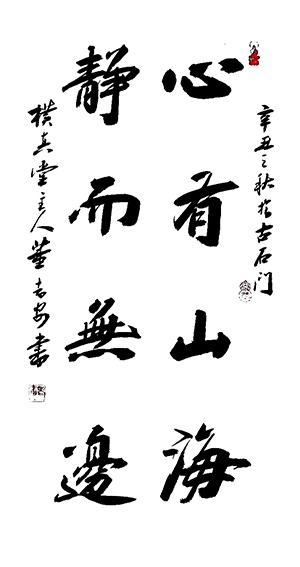 辛丑之秋於古石门
心有山海
靜而無邊
樸真堂主人董吉安書